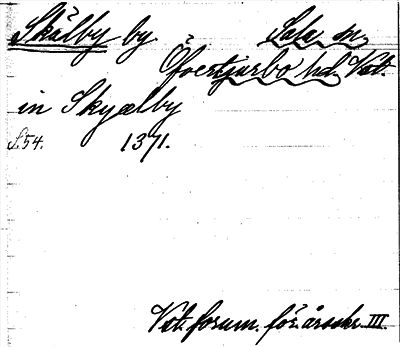 Skälby by Sala sn,
Övertjurbo hd, Vstl.
in Skyælby
S. 54. 1371.
Vstl. fornm. för. årsskr. III.